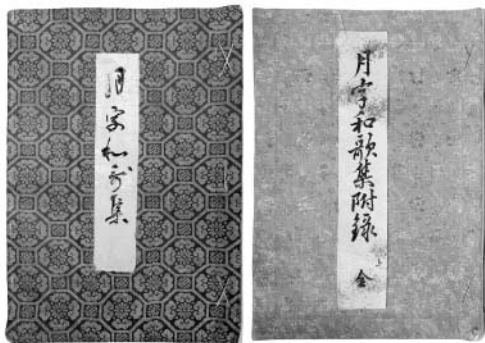 月字和哥集
月字和歌集附録 全